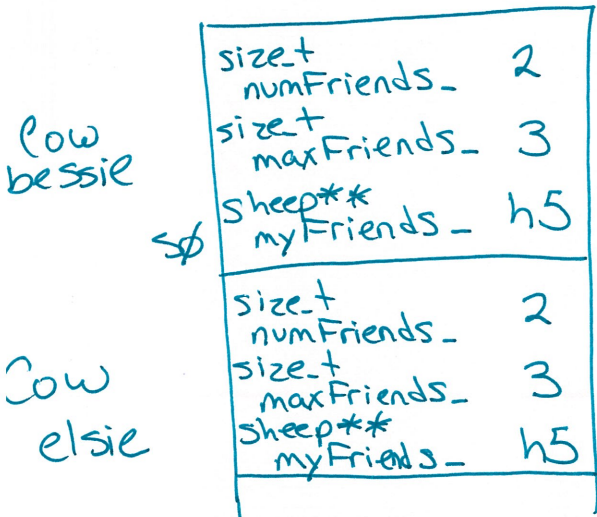 Cow
bessie
size_t
numFriends_ 2
size_t
maxFriends_ 3
sheep**
myFriends_ h5
s0
Cow
elsie
size_t
numFriends_ 2
size_t
maxFriends_ 3
sheep**
myFriends_ h5